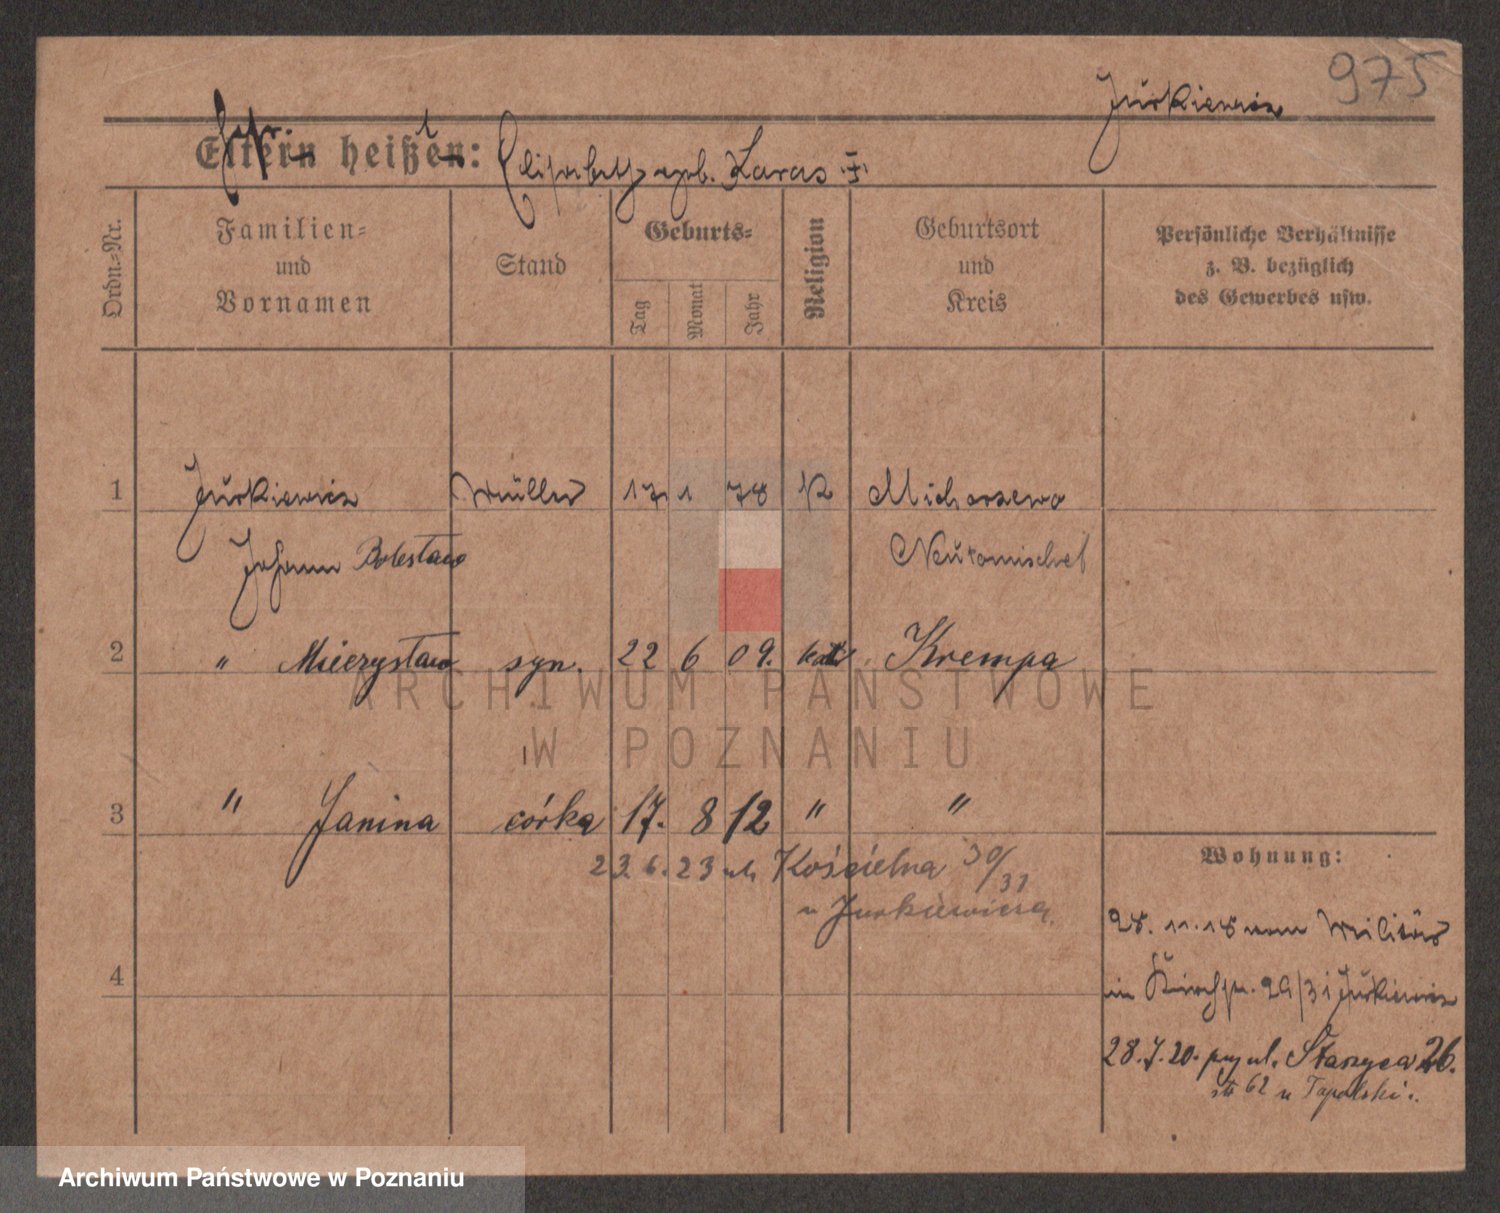 975
Jurkiewicz
Eltern heißen: Elisabeth geb. Karas
Ordn.-Nr.
Familien- und Vornamen
Stand
Geburts-
Tag
Monat
Jahr
Religion
Geburtsort und Kreis
Persönliche Verhältnisse z. B. bezüglich des Gewerbes usw.
1 Jurkiewicz Müller 17 1 78 K Michorzewo
Johann Bolesław Neutomischel
2 " Mieczysław syn. 22 6 09. kat. Krempa
3 " Janina córka 17. 8 12 " "
23.6.23 ul. Kościelna 30/31
u Jurkiewicza
Wohnung:
28. 11. 18 vom Militär
in Kirchstr. 29/31 Jurkiewicz
28.7.20. przy ul. Staszyca 26.
62 u Topolski.
4
ARCHIWUM PAŃSTWOWE
W POZNANIU
Archiwum Państwowe w Poznaniu